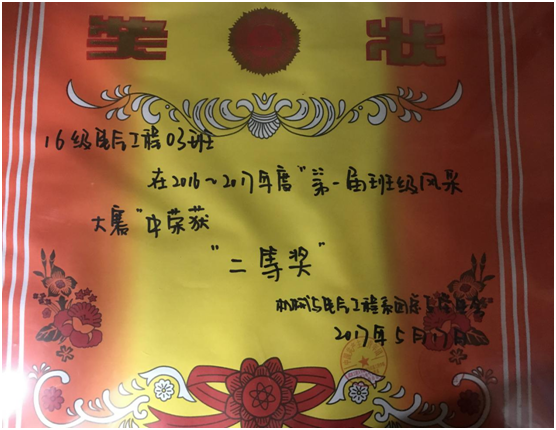 奖 状
16级电气工程03班
在2016~2017年度"第一届班级风采
大赛"中荣获
"二等奖"
机械与电气工程系团总支学生会
2017年5月17日